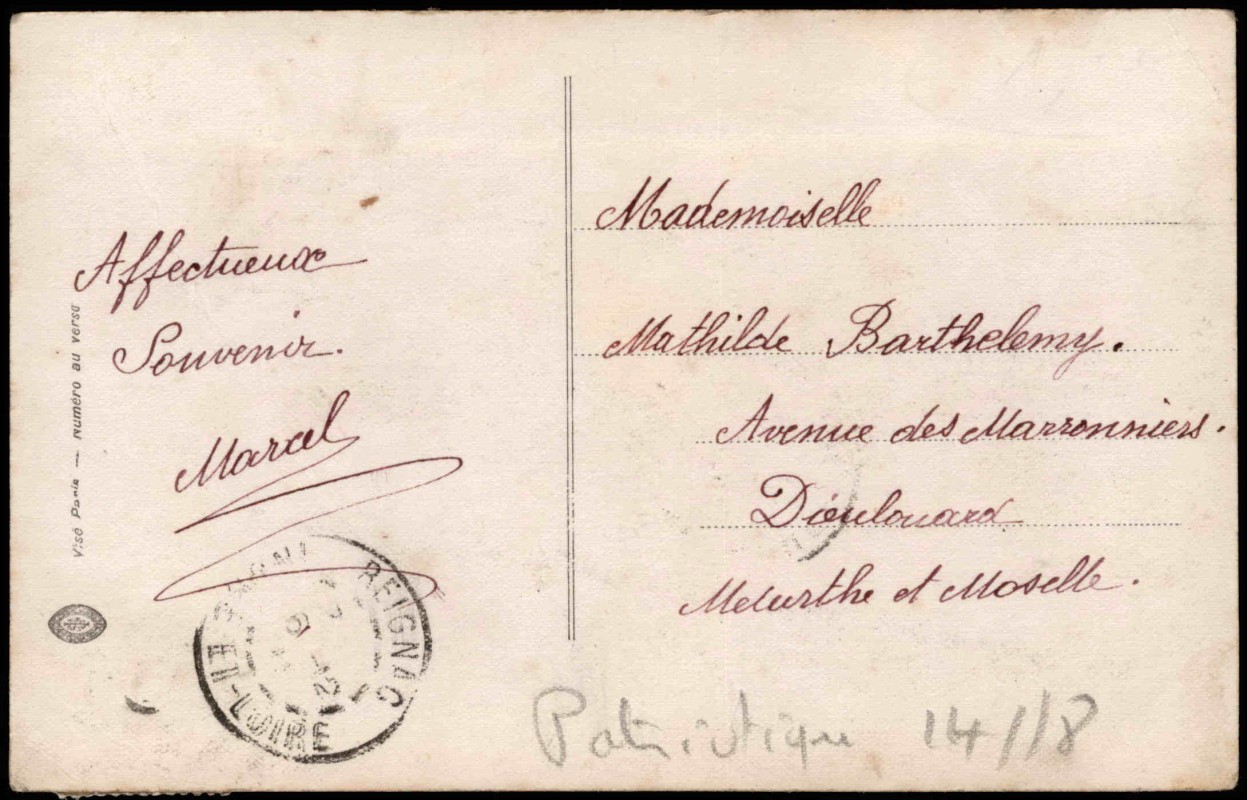 Affectueux
Souvenir.
Marcel
Visé Paris — Numéro au verso
Mademoiselle
Mathilde Barthelemy.
Avenue des Marronniers.
Dieulouard
Meurthe et Moselle.
REIGNAC
ET-LOIRE
Patriotique 14/18